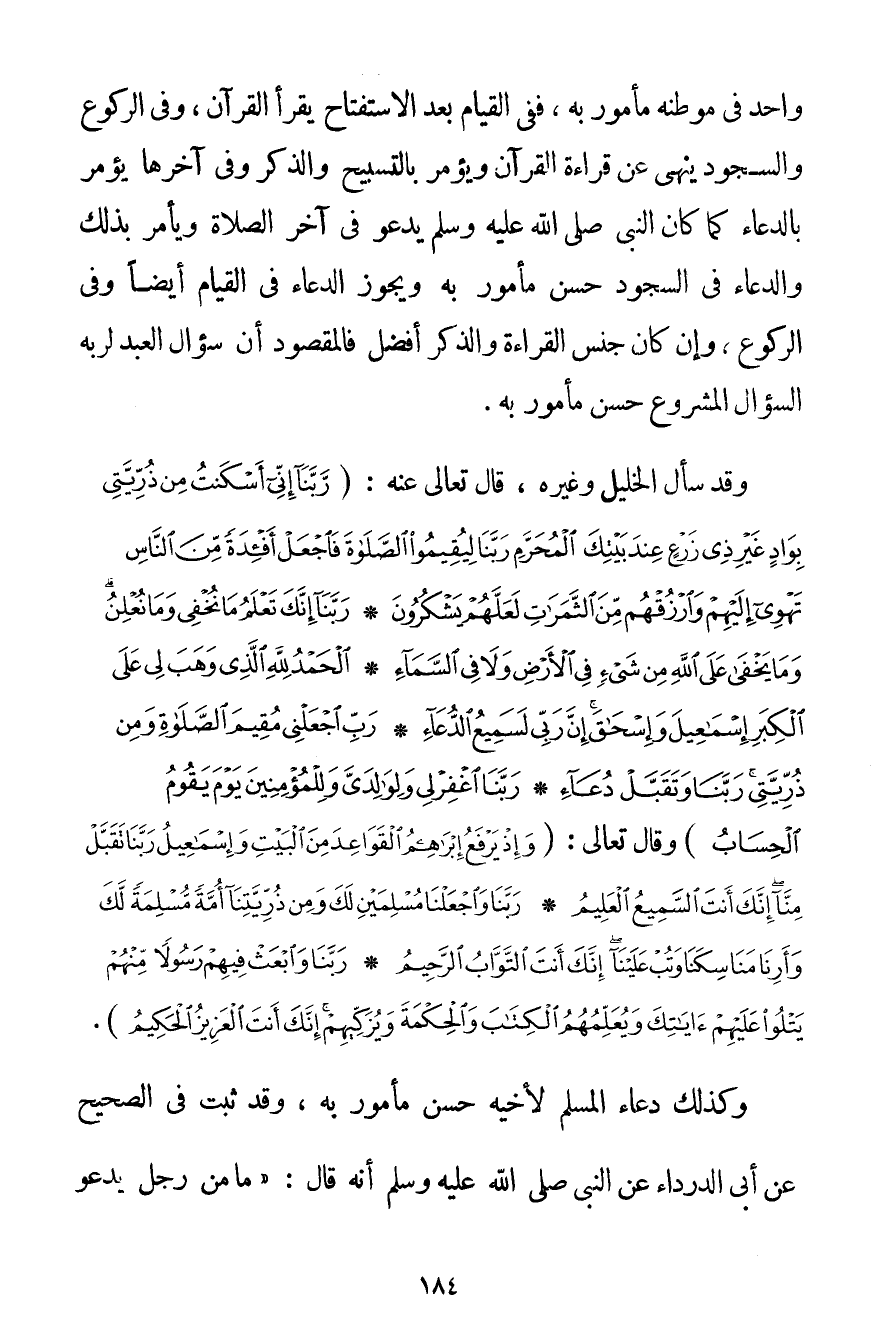 واحد فى موطنه مأمور به ، ففى القيام بعد الاستفتاح يقرأ القرآن ، وفى الركوع
والسـجود ينهى عن قراءة القرآن ويؤمر بالتسبيح والذكر وفى آخرها يؤمر
بالدعاء كما كان النبى صلى الله عليه وسلم يدعو فى آخر الصلاة ويأمر بذلك
والدعاء فى السجود حسن مأمور به ويجوز الدعاء فى القيام أيضـاً وفى
الركوع ، وإن كان جنس القراءة والذكر أفضل فالمقصود أن سؤال العبد لربه
السؤال المشروع حسن مأمور به .
وقد سأل الخليل وغيره ، قال تعالى عنه : ( رَّبَّنَآ إِنِّىٓ أَسْكَنتُ مِن ذُرِّيَّتِى
بِوَادٍ غَيْرِ ذِى زَرْعٍ عِندَ بَيْتِكَ ٱلْمُحَرَّمِ رَبَّنَا لِيُقِيمُوا۟ ٱلصَّلَوٰةَ فَٱجْعَلْ أَفْـِٔدَةً مِّنَ ٱلنَّاسِ
تَهْوِىٓ إِلَيْهِمْ وَٱرْزُقْهُم مِّنَ ٱلثَّمَرَٰتِ لَعَلَّهُمْ يَشْكُرُونَ * رَبَّنَآ إِنَّكَ تَعْلَمُ مَا نُخْفِى وَمَا نُعْلِنُ ۗ
وَمَا يَخْفَىٰ عَلَى ٱللَّهِ مِن شَىْءٍ فِى ٱلْأَرْضِ وَلَا فِى ٱلسَّمَآءِ * ٱلْحَمْدُ لِلَّهِ ٱلَّذِى وَهَبَ لِى عَلَى
ٱلْكِبَرِ إِسْمَٰعِيلَ وَإِسْحَٰقَ ۚ إِنَّ رَبِّى لَسَمِيعُ ٱلدُّعَآءِ * رَبِّ ٱجْعَلْنِى مُقِيمَ ٱلصَّلَوٰةِ وَمِن
ذُرِّيَّتِى ۚ رَبَّنَا وَتَقَبَّلْ دُعَآءِ * رَبَّنَا ٱغْفِرْ لِى وَلِوَٰلِدَىَّ وَلِلْمُؤْمِنِينَ يَوْمَ يَقُومُ
ٱلْحِسَابُ ) وقال تعالى : ( وَإِذْ يَرْفَعُ إِبْرَٰهِـۧمُ ٱلْقَوَاعِدَ مِنَ ٱلْبَيْتِ وَإِسْمَٰعِيلُ رَبَّنَا تَقَبَّلْ
مِنَّآ ۖ إِنَّكَ أَنتَ ٱلسَّمِيعُ ٱلْعَلِيمُ * رَبَّنَا وَٱجْعَلْنَا مُسْلِمَيْنِ لَكَ وَمِن ذُرِّيَّتِنَآ أُمَّةً مُّسْلِمَةً لَّكَ
وَأَرِنَا مَنَاسِكَنَا وَتُبْ عَلَيْنَآ ۖ إِنَّكَ أَنتَ ٱلتَّوَّابُ ٱلرَّحِيمُ * رَبَّنَا وَٱبْعَثْ فِيهِمْ رَسُولًا مِّنْهُمْ
يَتْلُوا۟ عَلَيْهِمْ ءَايَٰتِكَ وَيُعَلِّمُهُمُ ٱلْكِتَٰبَ وَٱلْحِكْمَةَ وَيُزَكِّيهِمْ ۚ إِنَّكَ أَنتَ ٱلْعَزِيزُ ٱلْحَكِيمُ ) .
وكذلك دعاء المسلم لأخيه حسن مأمور به ، وقد ثبت فى الصحيح
عن أبى الدرداء عن النبى صلى الله عليه وسلم أنه قال : « ما من رجل يدعو
١٨٤